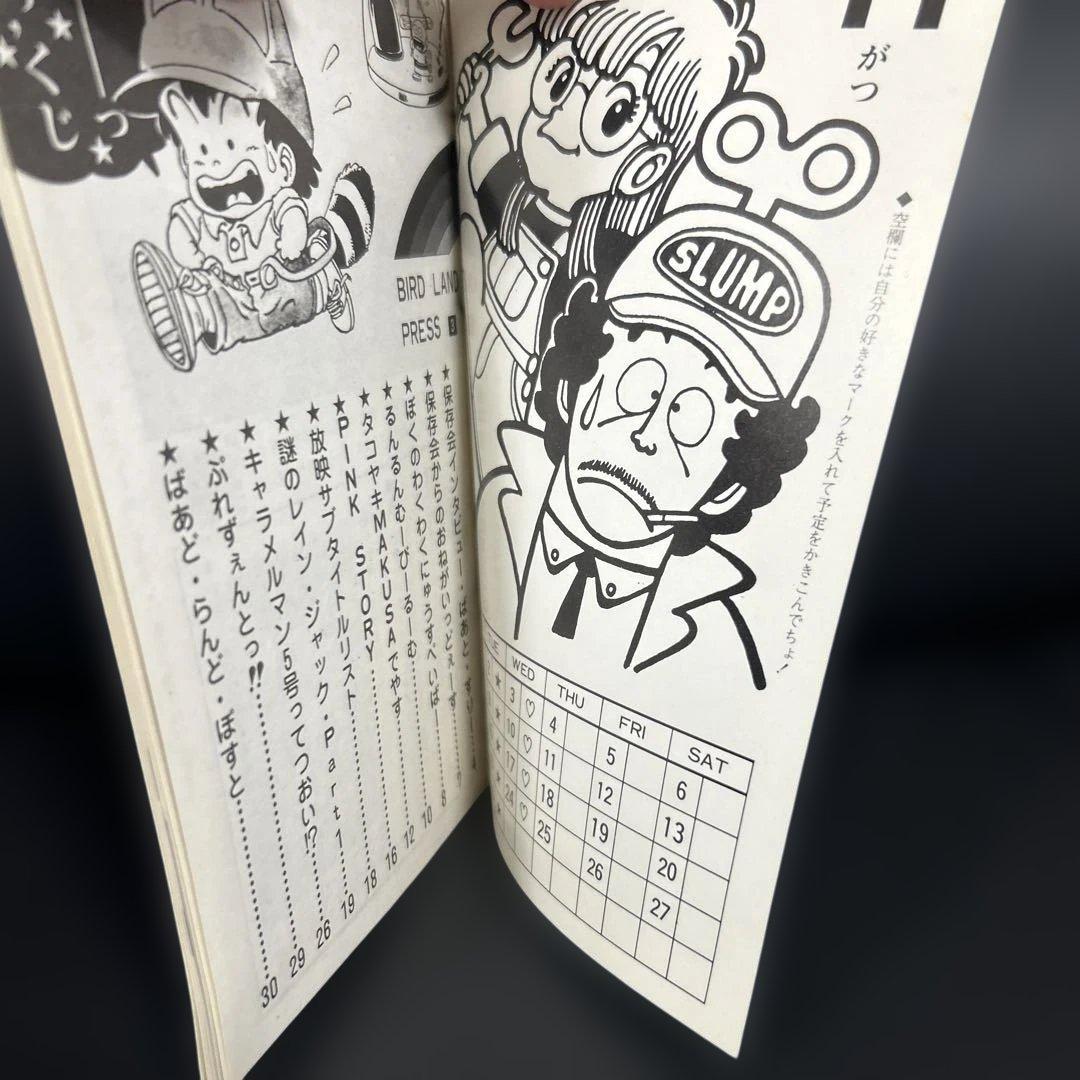 くじっ
BIRD LAND
PRESS 8
★保存会インタビュー・ばあと・
★保存会からのおねがいっどぇーす………9
★ぼくのわくわくにゅうすぺ いぱー……8
★るんるんむーびーるーむ…………10
★タコヤキMAKUSAでやす…………12
★PINK STORY…………16
★放映サブタイトルリスト…………18
★謎のレイン・ジャック・Part1…………19
★キャラメルマン5号ってつおい!?…………26
★ぷれずぇんとっ!!…………29
★ばあど・らんど・ぽすと…………30
がつ
◆空欄には自分の好きなマークを入れて予定をかきこんでちょ!
SLUMP
WED THU FRI SAT
★ 3 ♡ 4 5 6
★ 10 ♡ 11 12 13
★ 17 ♡ 18 19 20
★ 24 ♡ 25 26 27